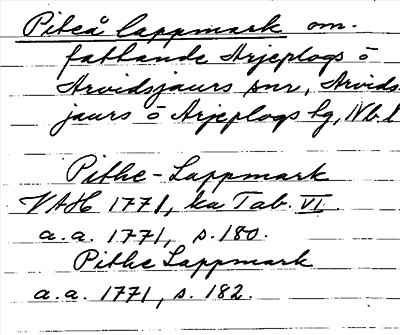 Piteå lappmark om-
fattande Arjeplogs o
Arvidsjaurs snr, Arvids-
jaurs o Arjeplogs tg, Nb l
Pithe-Lappmark
VAH 1771, ka Tab. VI.
a.a. 1771, s. 180.
Pithe Lappmark
a.a. 1771, s. 182.